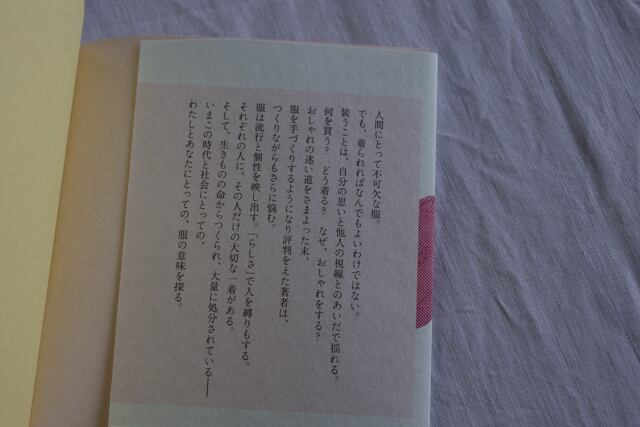 人間にとって不可欠な服。
でも、着られればなんでもよいわけではない。
装うことは、自分の思いと他人の視線とのあいだで揺れる。
何を買う？　どう着る？　なぜ、おしゃれをする？
おしゃれの迷い道をさまよった末、
服を手づくりするようになり評判をえた著者は、
つくりながらもさらに悩む。
服は流行と個性を映し出す。「らしさ」で人を縛りもする。
それぞれの人に、その人だけの大切な一着がある。
そして、生きものの命からつくられ、大量に処分されている――
いまこの時代と社会にとっての、
わたしとあなたにとっての、服の意味を探る。